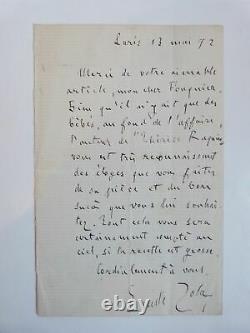 Paris 13 mai 92
Merci de votre aimable
article, mon cher Fouquier.
Bien qu'il n'y ait que des
bébés, au fond de l'affaire,
l'auteur de "Thérèse Raquin"
vous est très reconnaissant
des éloges que vous faites
de sa pièce et du bon
succès que vous lui souhai-
tez. Tout cela vous sera
certainement compté au
ciel, si la recette est grosse.
Cordialement à vous,
Emile Zola